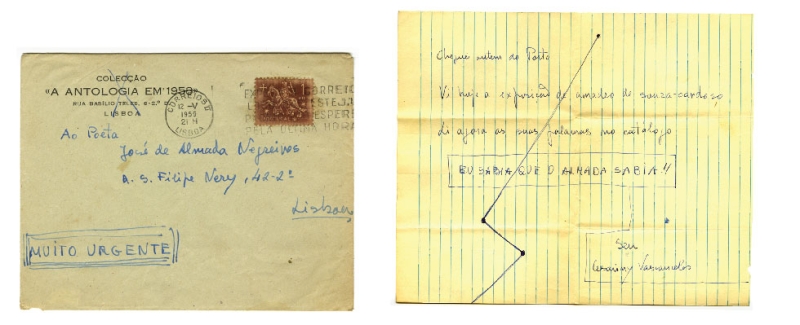 COLECÇÃO
"A ANTOLOGIA EM 1958"
RUA BASÍLIO TELES, 6-2.º
LISBOA
CORREIOS
12-V
1959
21 H
LISBOA
CORREIO
ESTEJA
ESPERE
PELA ÚLTIMA HORA
Ao Poeta
José de Almada Negreiros
R. S. Filipe Nery, 42-2º
Lisboa
MUITO URGENTE
Cheguei ontem do Porto
Vi hoje a exposição de amadeo de souza-cardoso,
li agora as suas palavras no catálogo
EU SABIA QUE O ALMADA SABIA!!
Seu
Cesariny Vasconcelos